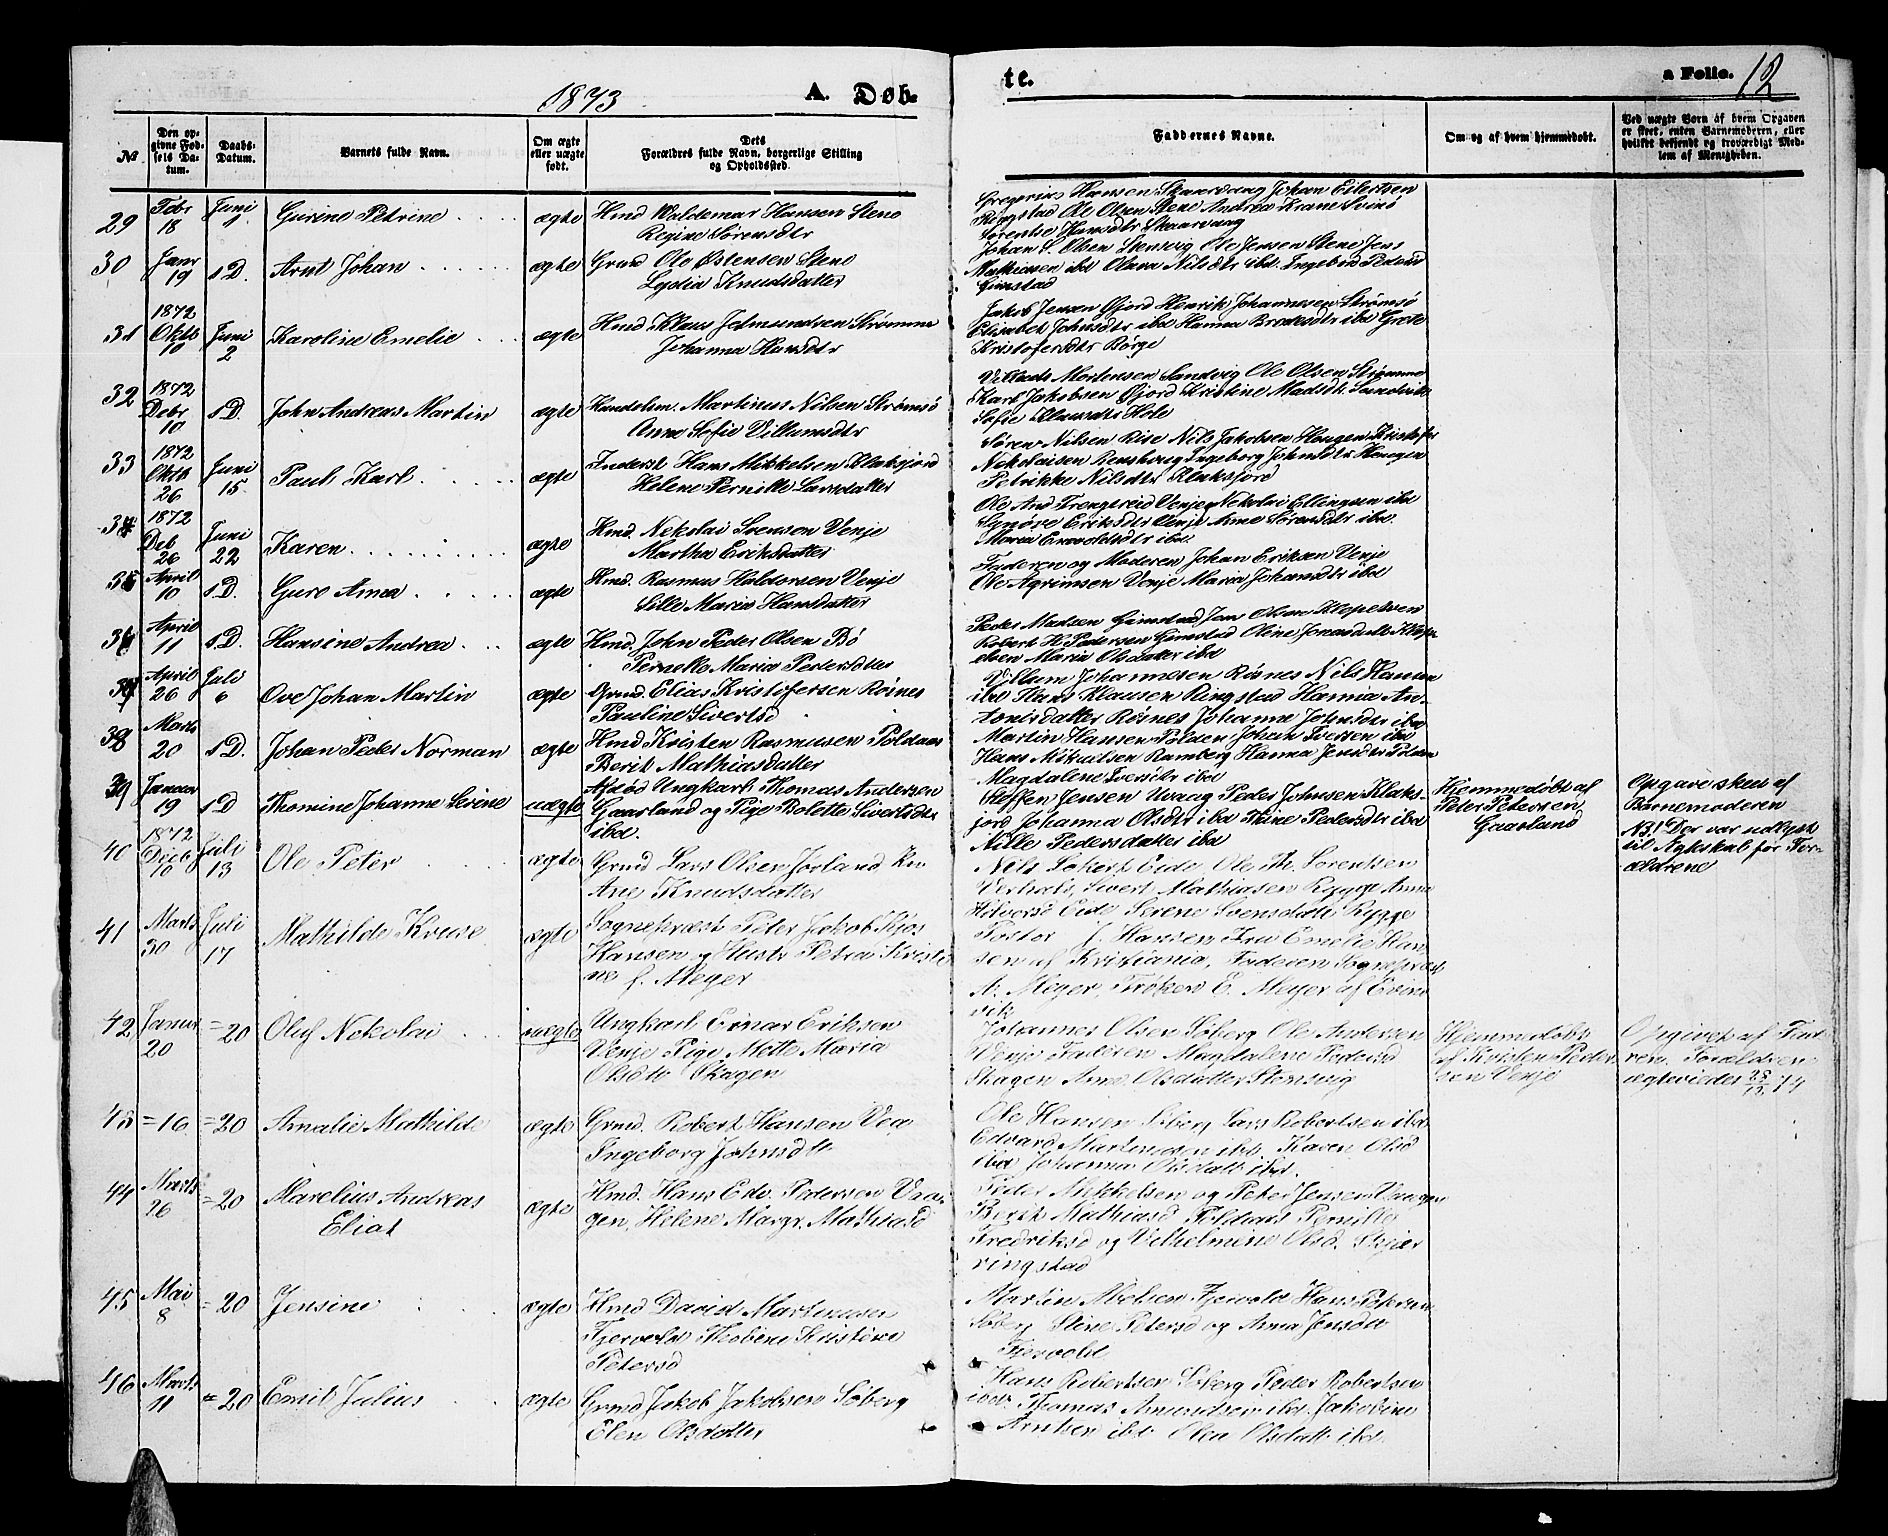 1873
A. Døb-
te.
a Folio. 12
No.
Den opgivne Fødsels Datum.
Daabs-Datum.
Barnets fulde Navn.
Om ægte eller uægte født.
Dets Forældres fulde Navn, borgerlige Stilling og Opholdssted.
Faddernes Navne.
Om og af hvem hjemmedøbt.
Ved uægte Børn af hvem Opgaven er skeet, enten Barnemoderen, eller hvilket bekjendt og troværdigt Medlem af Menigheden.
29 Febr 18 Juni 1 Gurine Petrine ægte Hmd Waldemar Hansen Stene
Regine Sørensdtr
Gregerius Hansen Skaarvaag Johan Eilertsen
Ringstad Ole Olsen Stene Andrea Krane Svinø
Lorentse Hansdtr Skaarvaag
30 Janr 19 s.D. Arnt Johan ægte Grmd Ole Østensen Stene
Lydia Knudsdatter
Johan S. Olsen Stensvig Ole Jensen Stene Jens
Mathiasen ibd Olava Nilsdtr ibd. Ingebor Pedersd
Gimstad
31 1872 Oktb 10 Juni 2 Karoline Emelie ægte Hmd Klaus Jetmundsen Strømme
Johanna Hansdtr
Jakob Jensen Gjord Henrik Johannesen Strømsø
Elisabet Johnsdtr ibd Hanna Brodesdtr ibd Grete
Kristofersdtr Børge
32 1872 Debr 10 s.D. John Andreas Martin ægte Handelsm. Martinus Nilsen Strømsø
Anne Sofie Villumsdtr
Villads Mortensen Sandvig Ole Olsen Strømme
Karl Jakobsen Gjord Kristine Madsdtr Sandvik
Sofie Klausdtr Hole
33 1872 Oktb 26 Juni 15 Paul Karl ægte Inderst Hans Mikkelsen Klaksjord
Helene Pernille Larsdatter
Søren Nilsen Rise Nils Jakobsen Haugen Kristofer
Nikolaisen Ramberg Ingeborg Johnsdtr Haugen
Petrikke Nilsdtr Klaksjord
34 1872 Deb 26 Juni 22 Karen ægte Hmd. Nekolai Svensen Venje
Martha Eriksdatter
Ole And. Frengereid Venje Nekolai Ellingsen ibd
Synøve Eriksdtr Venje Anne Sørensdtr ibd.
Maria Ewaldsdtr ibd.
35 April 10 s.D. Guro Anna ægte Hmd. Rasmus Haldorsen Venje
Sille Maria Hansdatter
Faderen og Moderen Johan Eriksen Venje
Ole Agrimsen Venje Maria Johansdtr ibd
36 April 11 s.D. Hansine Andrea ægte Hmd. John Peder Olsen Bø
Perneke Maria Pedersdtter
Peder Madsen Gimstad Jens Olsen Klepesven
Robert H. Pedersen Gimstad Oline Jonasdatt
Maria Olsdatter ibd
37 April 26 Juli 6 Ove Johan Martin ægte Grmd. Elias Kristofersen Røsnes
Pauline Sivertsd
Villum Johannesen Røsnes Nils Hansen
ibd Hans Klausen Ringstad Hansia An-
tonisdatter Røsnes Johanne Johnsdtr ibd
38 Marts 20 s.D. Johan Peder Norman ægte Hmd Kristen Rasmusen Poldaas
Berit Mathiasdatter
Martin Hansen Poldaas Johan Iversen ibd
Hans Mikaelsen Ramberg Hanna Jensdtr Poldaas
Magdalene Iversdtr ibd
39 Januar 19 s.D Thomine Johanne Serine uægte Afdød Ungkarl Thomas Andersen
Gaarland og Pige Bolette Sivertsdtr
ibd.
Steffen Jensen Uvaag Peder Johnsen Klaks-
jord Johanna Olsdtr ibd Trine Pedersdtr ibd
Nille Pedersdatter ibd
Hjemmedøbt af
Peter Petersen
Gaarland
Opgave skeet af
Barnemoderen
NB! Der var udlyst
til Ægteskab for For-
ældrene
40 1872 Decb 10 Juli 13 Ole Peter ægte Grmd Lars Olsen Jorland, Ko
Ane Knudsdatter
Nils Lokert Eide Ole Th. Sorentsen
Verhals, Sivert Mathiasen Rygge Anna
Hilversd Eide Serene Svensdattr Rygge
41 Marts 30 Juli 17 Mathilde Kruse ægte Sognepræst Peter Jakob Kjos
Hansen og Hustr Petra Kristi-
ne f. Meyer
Pastor f. Hansen, Fru Emelie Han-
sen af Kristiania, Faderen Sognepræst
A. Meyer, Frøken E. Meyer af Evind-
vik
42 Januar 20 = 20 Oluf Nekolai uægte Ungkarl Einar Eriksen
Venje Pige Mette Maria
Olsdtr Skagen
Johannes Olsen Søberg Ole Andersen
Venje Faderen Magdalene Pedersd
Skagen Ane Olsdatter Stensvig
Hjemmedøbt
af Kristen Peder-
sen Venje
Opgivet af Fad-
ren. Forældren
ægteviedes 28/12 74
43 = 16 = 20 Amalie Mathilde ægte Grmd. Robert Hansen Vea
Ingeborg Johnsdtr
Ole Hansen Søberg Lars Robertsen ibd
Edvard Martinusen ibd. Karen Olsd
ibd Johanna Olsdatt ibd.
44 Marts 26 = 20 Marelius Andreas
Elias ægte Hmd. Hans Edv. Pedersen Vaa-
gen, Helene Margr. Mathiasd
Peder Mikkelsen og Peter Jensen Vaagen
Berit Mathiasd Poldaas Pernille
Fredriksd og Vilhelmine Olsd. Skjær-
ringstad
45 Mai 8 = 20 Jensine ægte Hmd David Martinusen
Fjervold Thobine Kristine
Petersd
Martin Nielsen Fjervold Hans Petersen
Søberg Stine Petersd og Anna Jensdtr
Fjervold
46 Marts 11 = 20 Emil Julius ægte Grmd Jakob Jakobsen Søberg
Elen Olsdatter
Hans Robertsen Søberg Peder Robertsen
ibd. Thomas Amundsen ibd. Jakobine
Arntsen ibd Olea Olsdatt ibd.